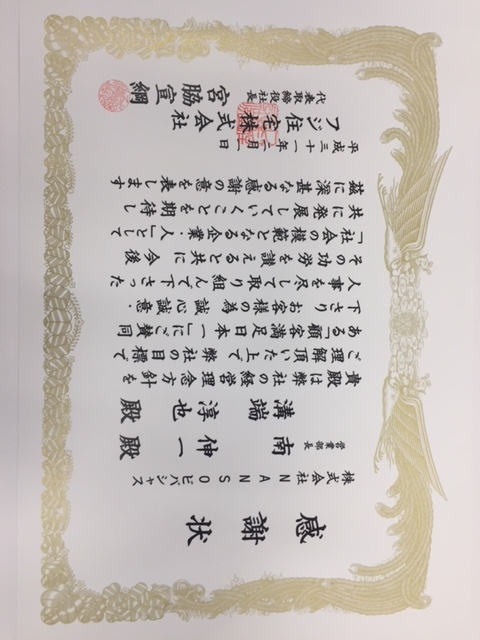 感謝状
株式会社ＮＡＮＳＳＯビバジャス
営業部長 南 伸一 殿
溝端 淳也 殿
貴殿は弊社の経営理念方針を
ご理解頂いた上で弊社の目標で
ある「顧客満足日本一」にご賛同
下さりお客様の為の誠心誠意・
人事を尽して取り組んで下さった
その功労を讃えると共に 今後
「社会の模範となる企業・人」として
共に発展していくことを期待し
茲に深甚なる感謝の意を表します
平成三十一年二月一日
フジ住宅株式会社
代表取締役社長 宮脇宣綱